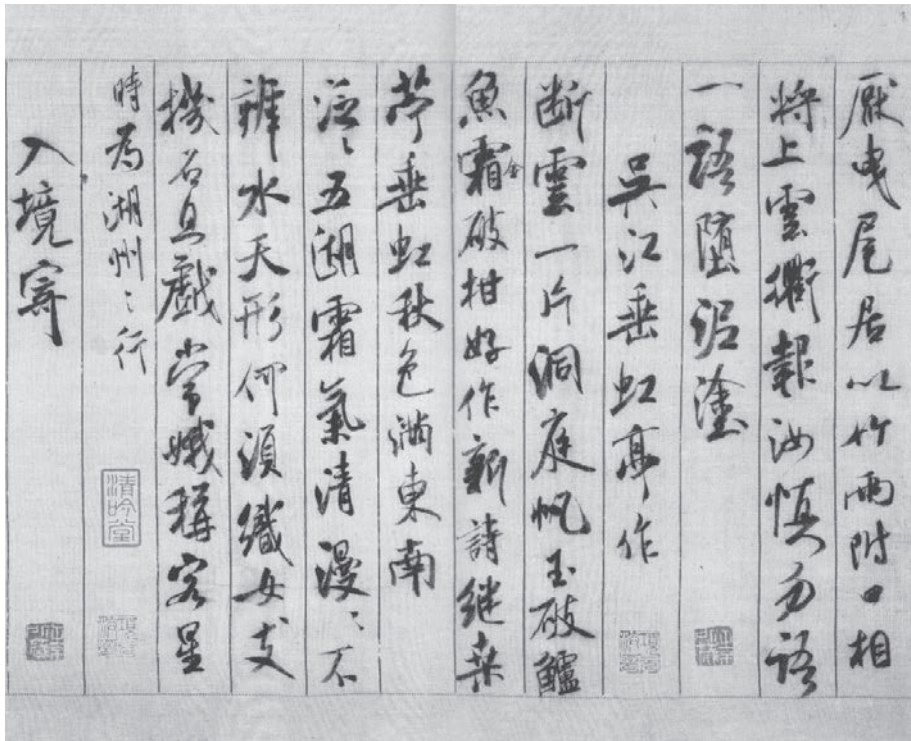 厭曳尾居以竹兩附口相
將上雲衢報汝慎勿語
一語墮泥塗
吳江垂虹亭作
断雲一片洞庭帆玉破鱸
魚霜金破柑好作新詩継桒
苧垂虹秋色滿東南
泛〻五湖霜氣清漫〻不
辨水天形何須織女支
機石且戲常娥稱客星
時為湖州之行
清吟堂
入境寄